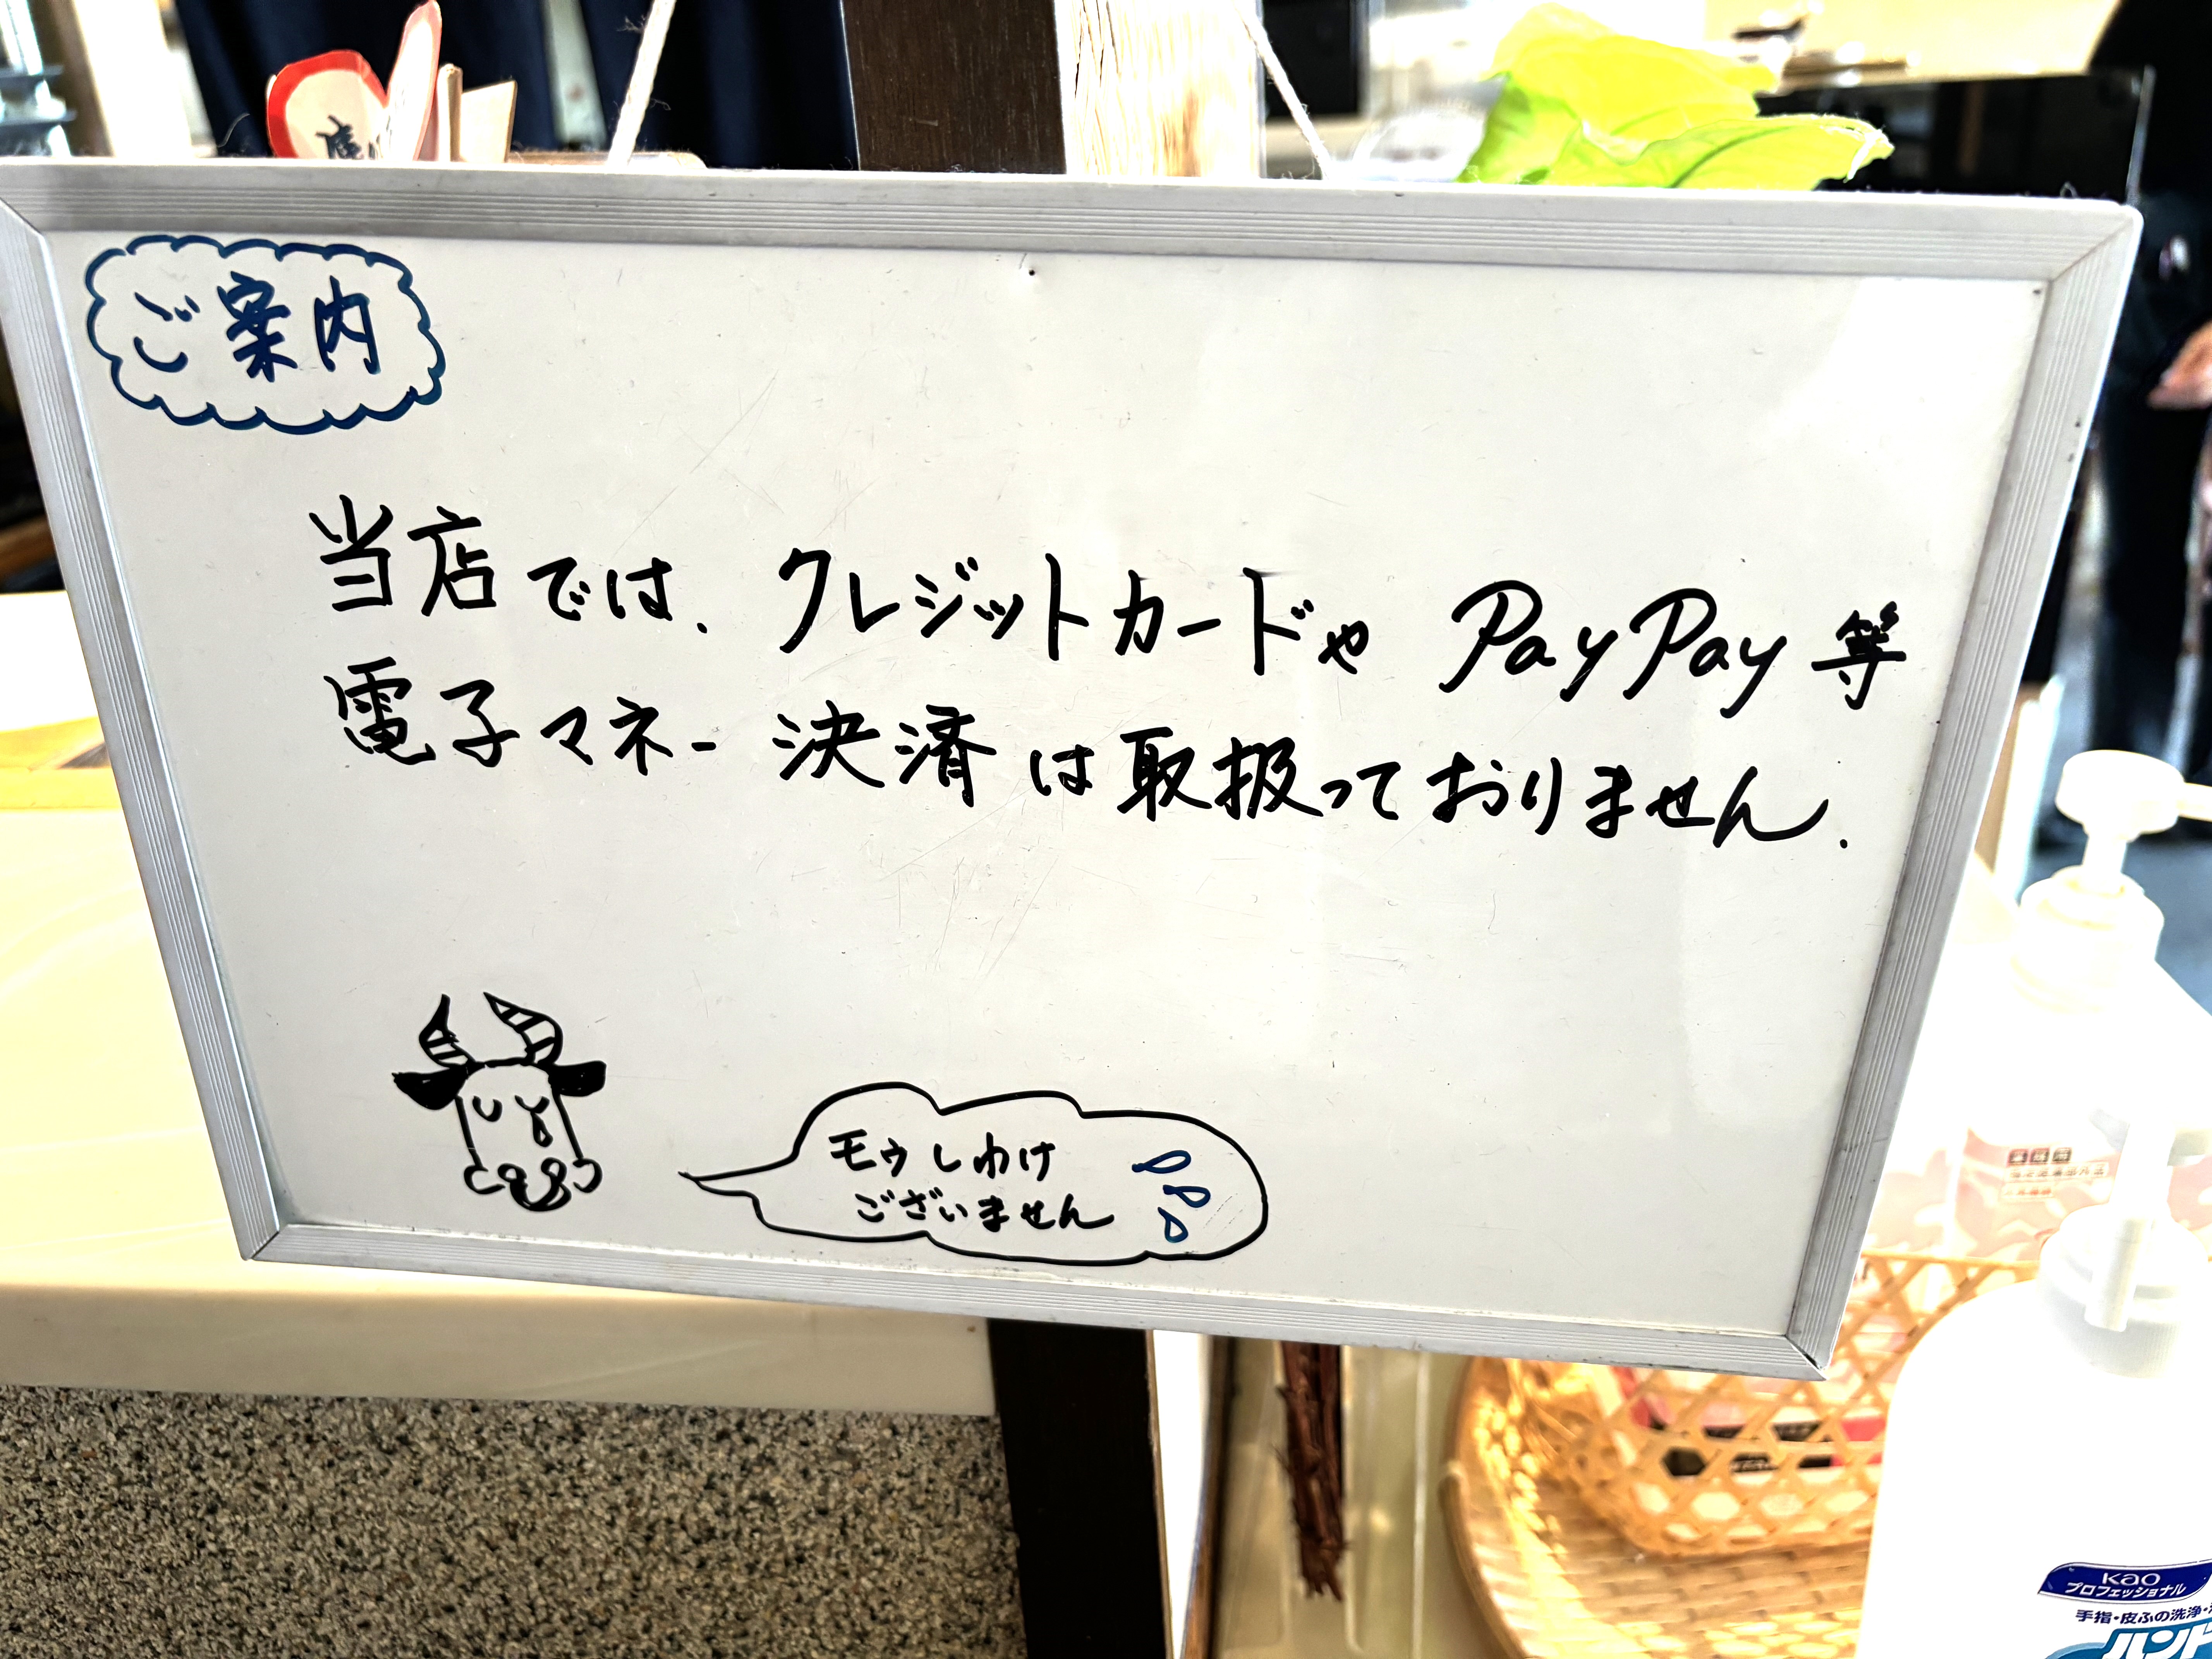 ご案内
当店では、クレジットカードや PayPay 等
電子マネー決済は取扱っておりません.
モゥしわけ
ございません
Kao
プロフェッショナル
手指・皮ふの洗浄・
ハンド